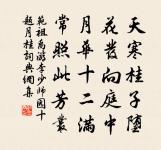 天寒桂子墮
花發向庭中
月華十二滿
常照此芳叢
範祖禹游李少師園十
題月桂詞典網集